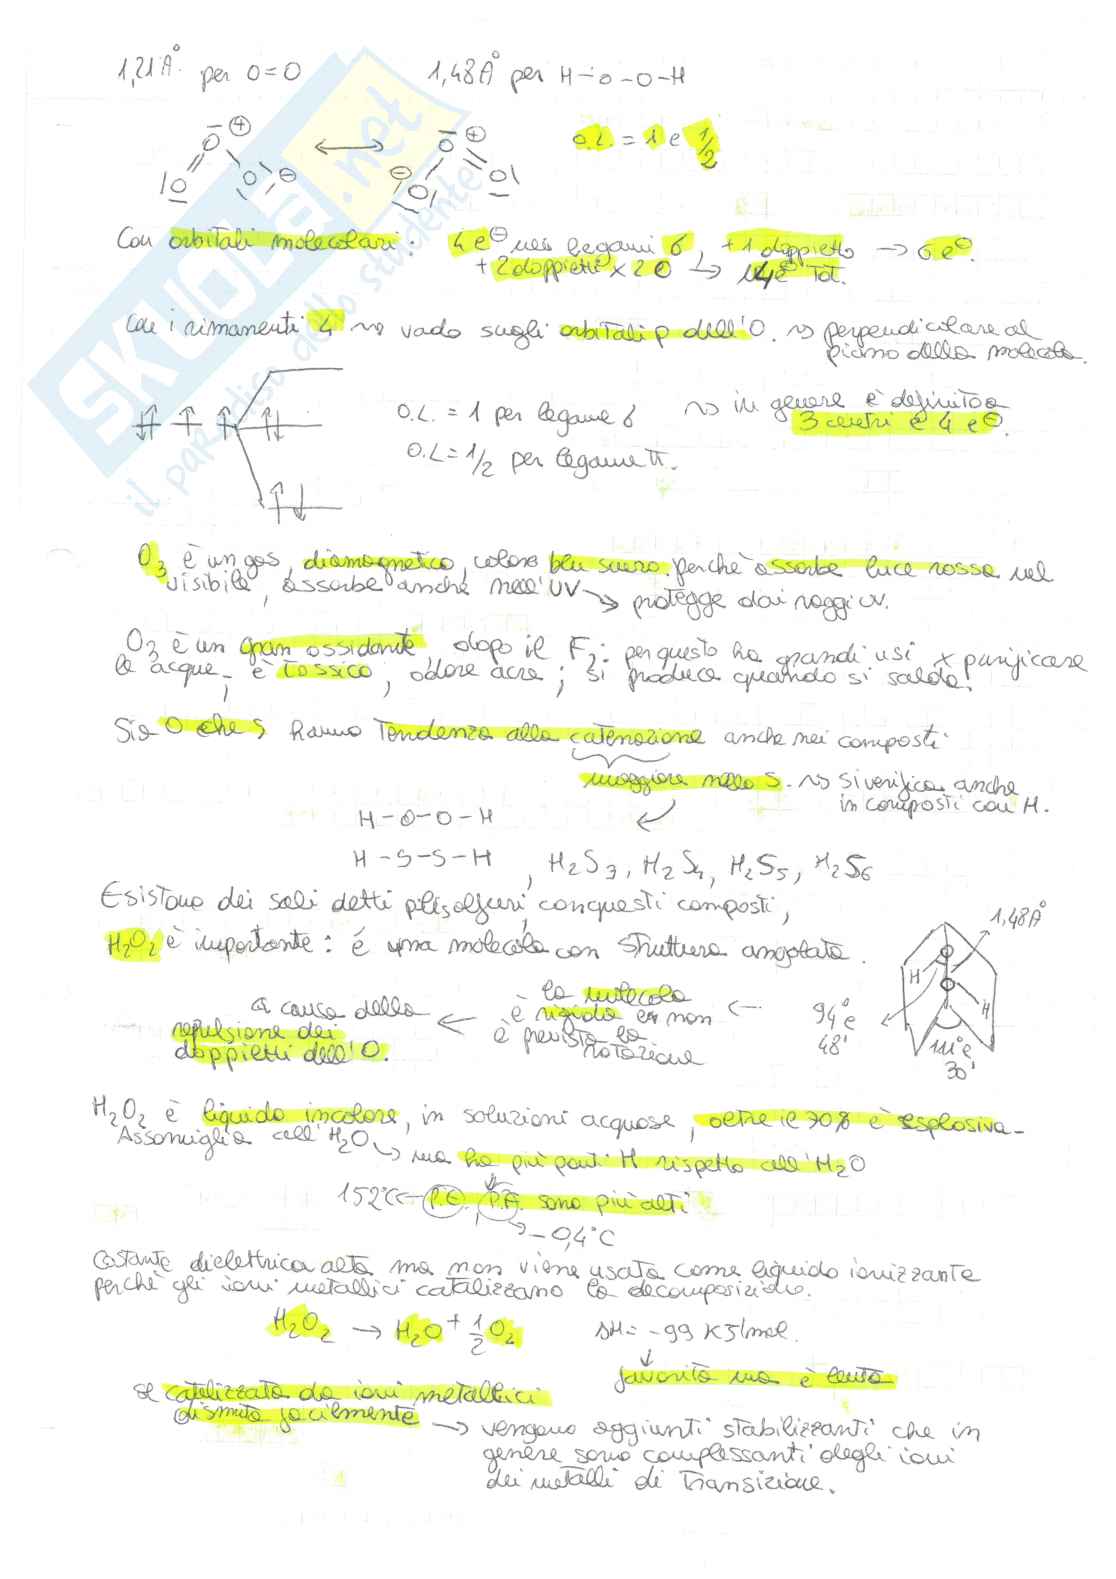 1,21 Å per O=O 1,48 Å per H-O-O-H
O.L. = 1 e 1/2
Con orbitali molecolari: 4 e⊖ nei legami σ, +1 doppietto → 6 e⊖.
+ 2 doppietti x 2 O → 14 e⊖ Tot.
Con i rimanenti 4 ⇝ vado sugli orbitali p dell'O. ⇝ perpendicolare al
piano della molecola.
O.L. = 1 per legame σ ⇝ in genere è definito a
3 centri e 4 e⊖.
O.L = 1/2 per legame π.
O3 è un gas, diamagnetico, colore blu scuro perché assorbe luce rossa nel
visibile, assorbe anche nell'UV → protegge dai raggi UV.
O3 è un gran ossidante dopo il F2: per questo ha grandi usi x purificare
le acque, è tossico, odore acre; si produce quando si salda.
Sia O che S hanno Tendenza alla catenazione anche nei composti
maggiore nello S. ⇝ si verifica anche
in composti con H.
H-O-O-H
H-S-S-H, H2S3, H2S4, H2S5, H2S6
Esistono dei sali detti polisolfuri, con questi composti,
H2O2 è importante: é una molecola con struttura angolata.
1,48 Å
H
H
94° e
48'
111° e
30'
la molecola
è rigida e non
è prevista la
rotazione
←
a causa della
repulsione dei
doppietti dell'O.
H2O2 è liquido incolore, in soluzioni acquose, oltre il 70% è esplosiva-
Assomiglia all'H2O → ma ha più ponti H rispetto all'H2O
152°C ← P.E. P.F. sono più alti
→ -0,4°C
Costante dielettrica alta ma non viene usata come liquido ionizzante
perché gli ioni metallici catalizzano la decomposizione.
H2O2 → H2O + 1/2 O2 ΔH = -99 KJ/mol.
favorita ma è lenta
se catalizzata da ioni metallici
dismuta facilmente → vengono aggiunti stabilizzanti che in
genere sono complessanti degli ioni
dei metalli di Transizione.
SKUOLA.net
il paradiso dello studente